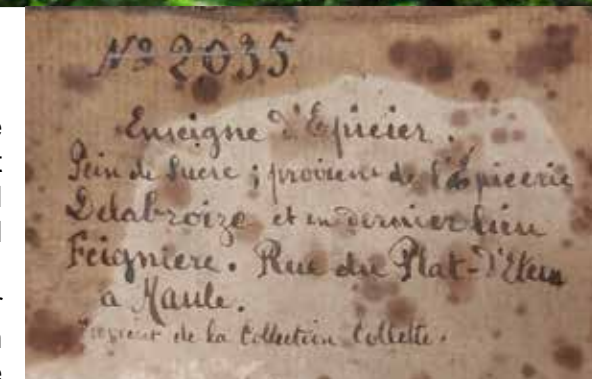 № 2035
Enseigne d'Epicier.
Pain de Sucre ; provient de l'Epicerie
Delabroize et en dernier lieu
Feigniere. Rue du Plat-d'Etain
à Maule.
Provient de la Collection Collette.